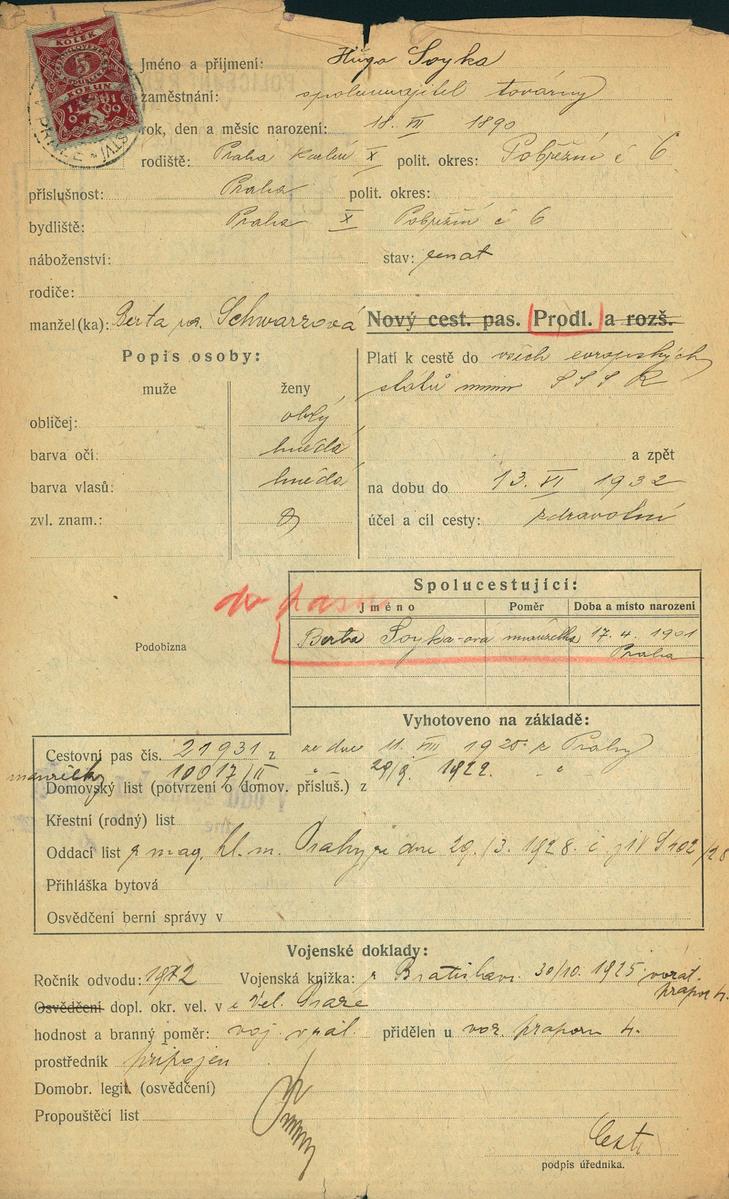 KOLEK
5
KORUN
1919
Jméno a příjmení: Hugo Soyka
zaměstnání: spolumajitel továrny
rok, den a měsíc narození: 18. VII 1890
rodiště: Praha Karlín X polit. okres: Pobřežní č 6
příslušnost: Praha polit. okres:
bydliště: Praha X Pobřežní č 6
náboženství: stav: ženat
rodiče:
manžel(ka): Berta roz. Schwarzová
Nový cest. pas. Prodl. a rozš.
Popis osoby:
muže ženy
obličej: oblý
barva očí: hnědá
barva vlasů: hnědá
zvl. znam.:
Platí k cestě do všech evropských
států mimo SSSR
a zpět
na dobu do 13. VI 1932
účel a cíl cesty: zdravotní
do pasu
Spolucestující:
Jméno Poměr Doba a místo narození
Berta Soyka-ova manželka 17. 4. 1901
Praha
Podobizna
Vyhotoveno na základě:
Cestovní pas čís. 21931 z ze dne 11. VIII 1928 z Prahy
manželky 10017/II " " 29/9. 1922. "
Domovský list (potvrzení o domov. přísluš.) z
Křestní (rodný) list
Oddací list z mag. hl. m. Prahy ze dne 29./3. 1928. č. IV S102/28
Přihláška bytová
Osvědčení berní správy v
Vojenské doklady:
Ročník odvodu: 1912 Vojenská knížka: z Bratislavi 30/10. 1925 vozat.
prapor 4.
Osvědčení dopl. okr. vel. v Vel. Praze
hodnost a branný poměr: voj. v zál. přidělen u voz. praporu 4.
prostředník připojen
Domobr. legit. (osvědčení)
Propouštěcí list
podpis úředníka.